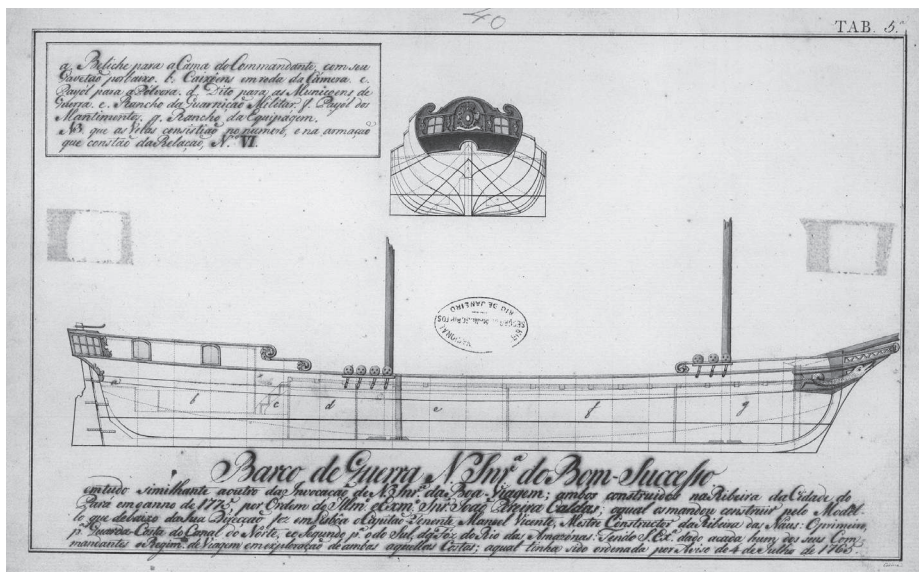 40
TAB. 5.ª
a. Beliche para a Cama do Commandante, com seu
Gavetão por baixo. b. Caixoens em roda da Câmera. c.
Payól para a Pólvora. d. Dito para as Muniçoens de
Guerra. e. Rancho da Guarnição Militar. f. Payól dos
Mantimentos. g. Rancho da Equipagem.
NB que as Vélas consistião no numero, e na armação
que constão da Relação, N. VI.
SECÇÃO MANUSCRIPTOS
RIO DE JANEIRO
a
b
c
d
e
f
g
Barco de Guerra N. Snr.ª do Bom-Successo
em tudo similhante a outro da Invocação de N. Snr.ª da Boa-Viagem; ambos construidos na Ribeira da Cidade do
Pará em o anno de 1773, por Ordem do Illm. e Exm. Snr. João Pereira Caldas; o qual os mandou construir pelo Model-
lo que debaixo da sua Direcção fez em Lisboa o Capitão Tenente Manoel Vicente, Mestre Constructor da Ribeira das Náus: O primeiro,
p.ª Guarda-Costa do Canal do Norte, e o Segundo p.ª o do Sul, da Foz do Rio das Amazonas: Sendo S. Ex. dado a cada hum dos seus Com-
mandantes o Regim. de Viagem em exploração de ambas aquellas Costas; a qual tinha sido ordenada por Aviso de 4 de Julho de 1765.